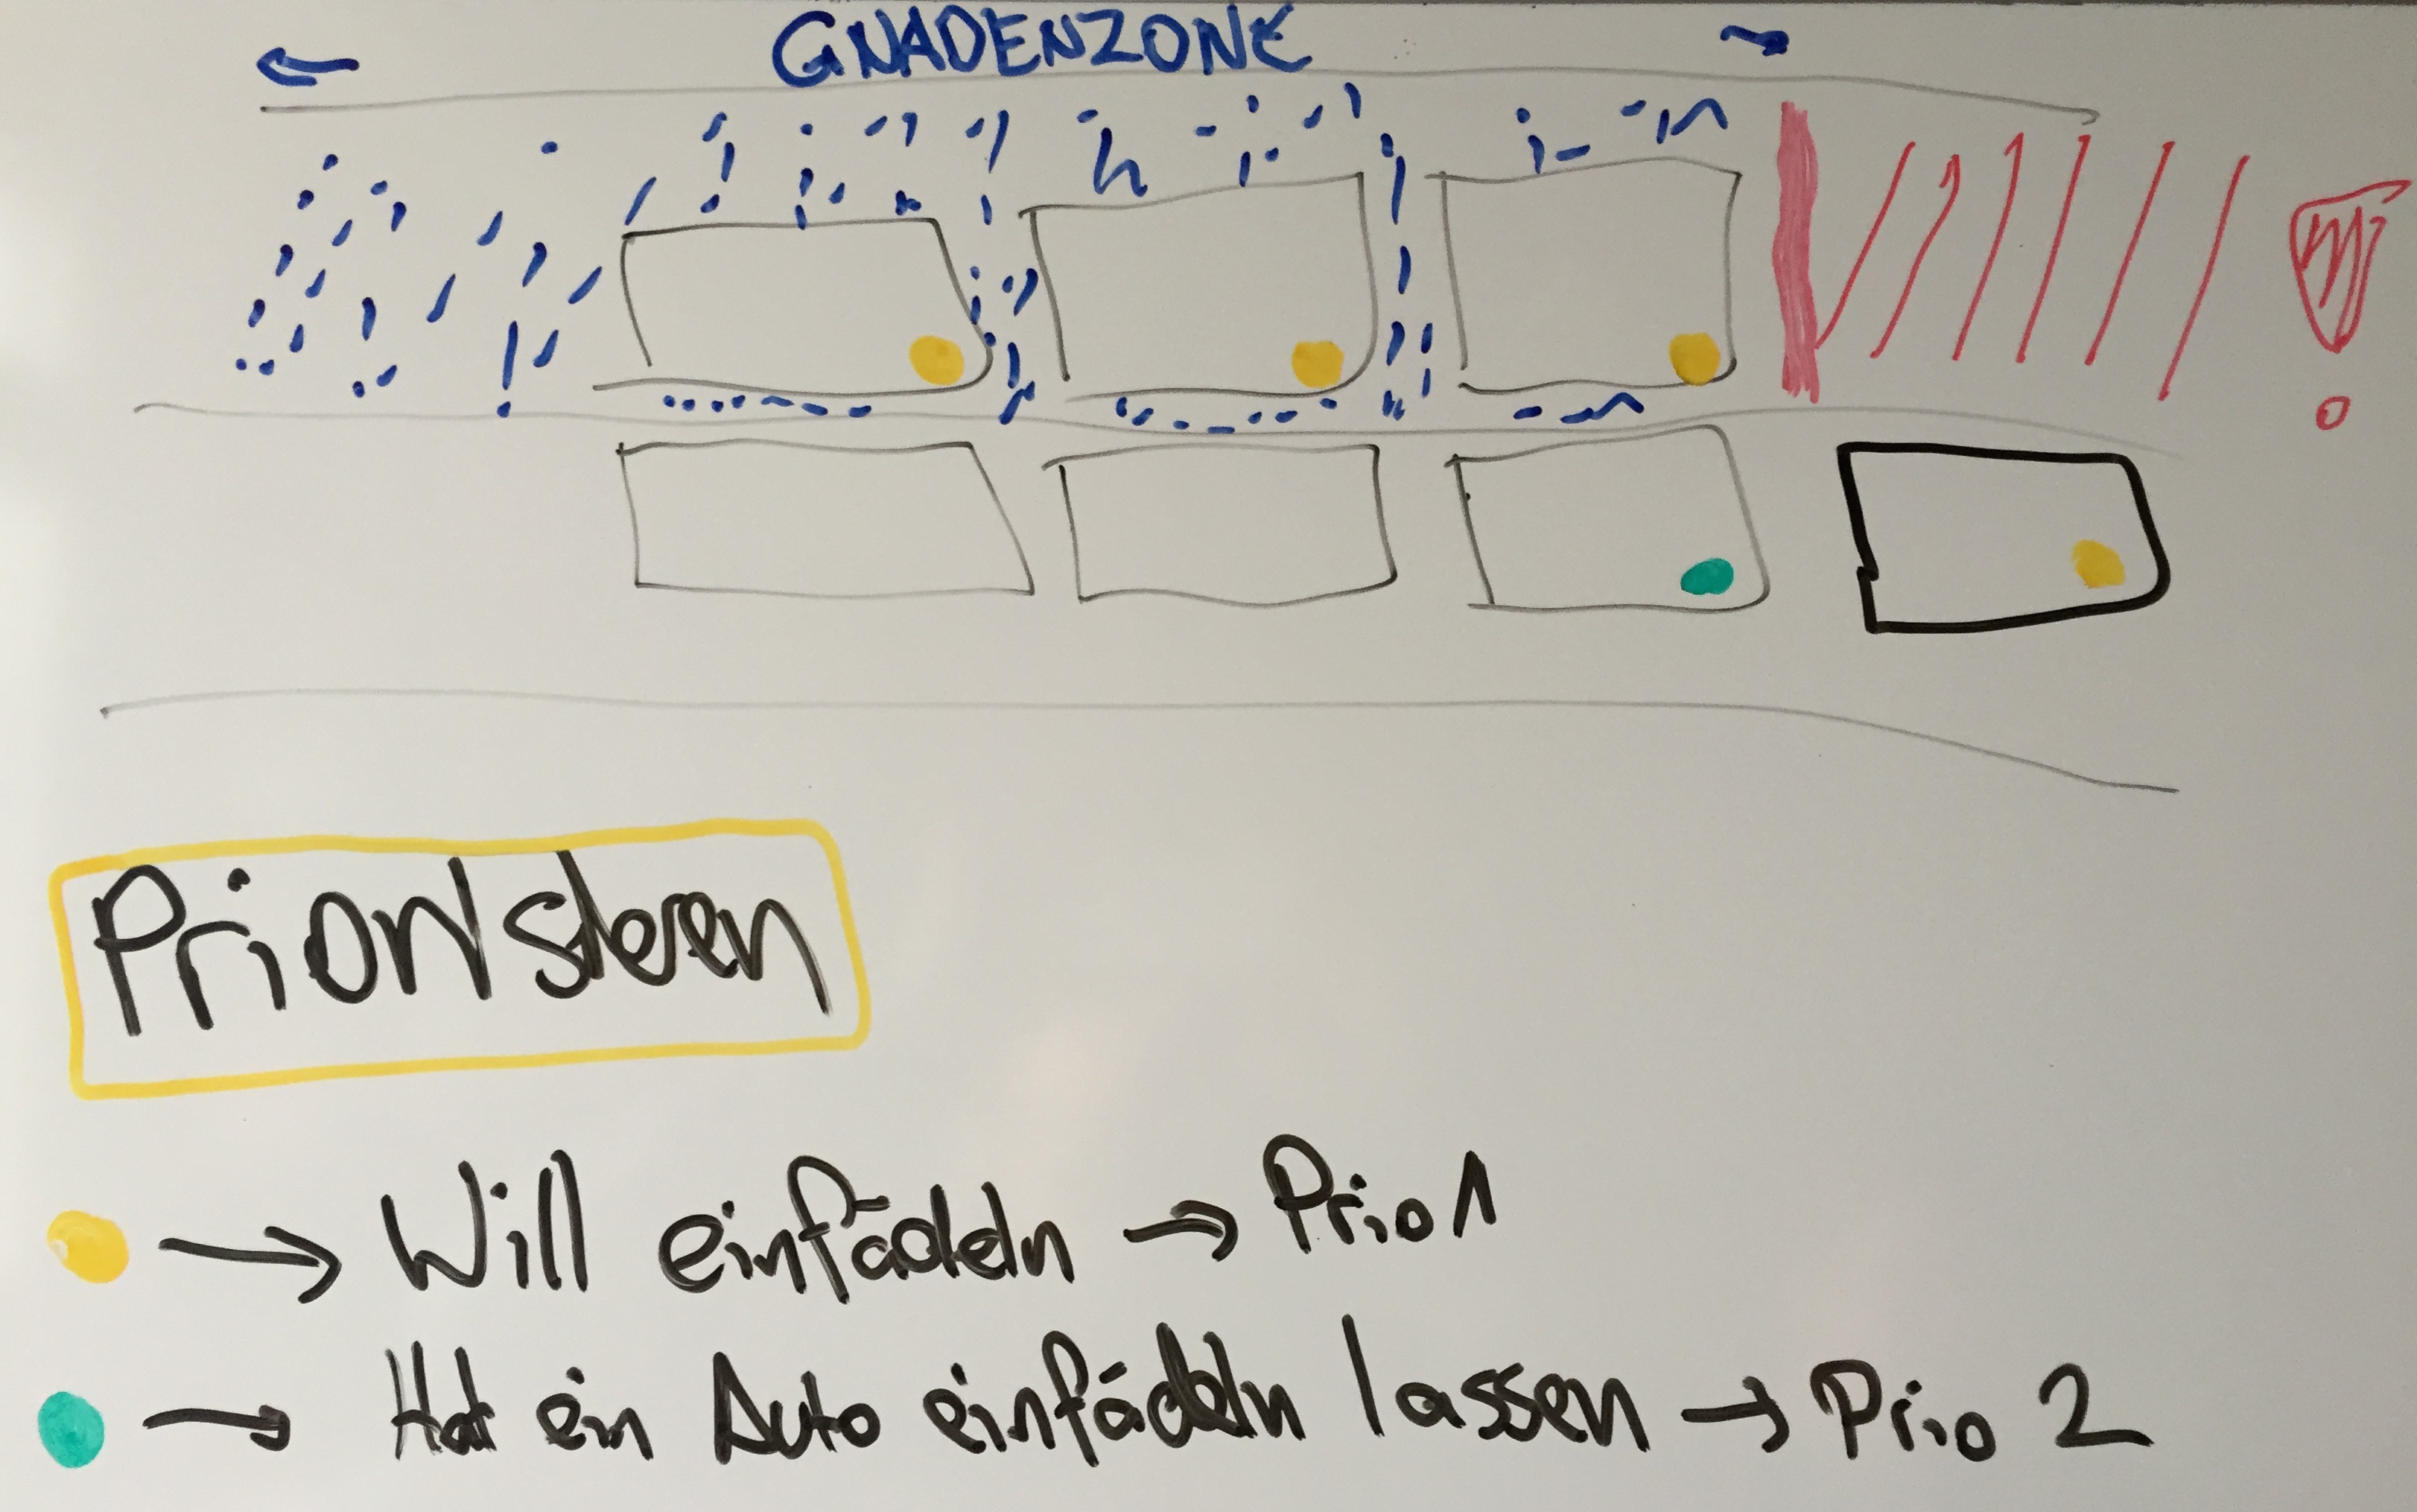 GNADENZONE
Priorisieren
→ Will einfädeln → Prio 1
→ Hat ein Auto einfädeln lassen → Prio 2